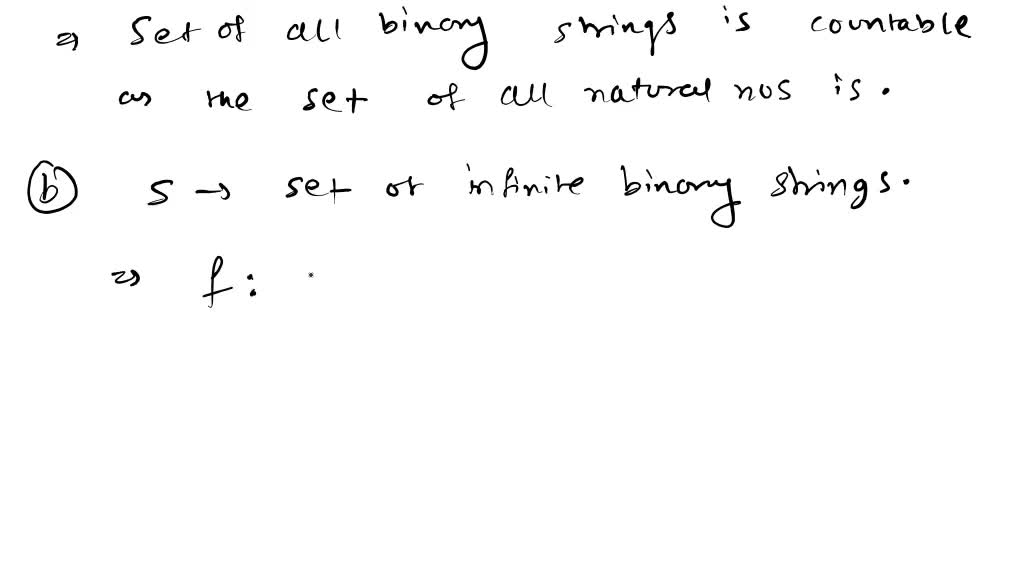 ⇒ Set of all binary strings is countable
as the set of all natural nos is.
(b) S → set of infinite binary strings.
⇒ f: